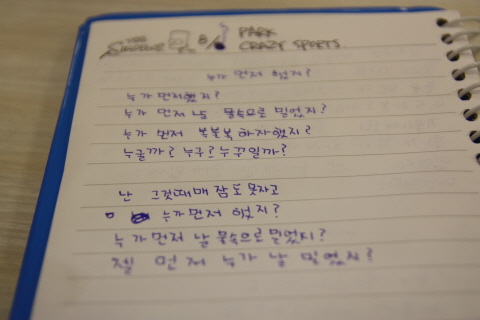 THE SIMPSONS 8/ PARK
CRAZY SPORTS
누가 먼저 했지?
누가 먼저했지?
누가 먼저 날 물속으로 밀었지?
누가 먼저 복불복 하자했지?
누굴까? 누구? 누구일까?
난 그것때매 잠도못자고
누가먼저 했지?
누가먼저 날 물속으로밀었지?
젤 먼저 누가 날 밀었지?